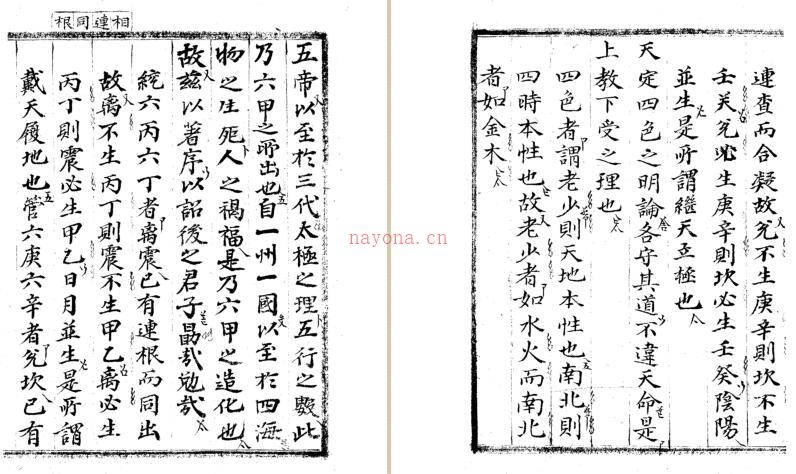 相連同根
五帝以至於三代太極之理五行之數此
乃六甲之所出也自一州一國以至於四海
物之生死人之禍福是乃六甲之造化也
故玆以著序以詔後之君子勗哉勉哉
統六丙六丁者离震已有連根而同出
故离不生丙丁則震不生甲乙离必生
丙丁則震必生甲乙日月並生是所謂
戴天履地也管六庚六辛者兌坎已有
連查而合凝故兌不生庚辛則坎不生
壬癸兌必生庚辛則坎必生壬癸陰陽
並生是所謂繼天立極也
天定四色之明論各守其道不違天命是
上教下受之理也
四色者謂老少則天地本性也南北則
四時本性也故老少者如水火而南北
者如金木
nayona.cn